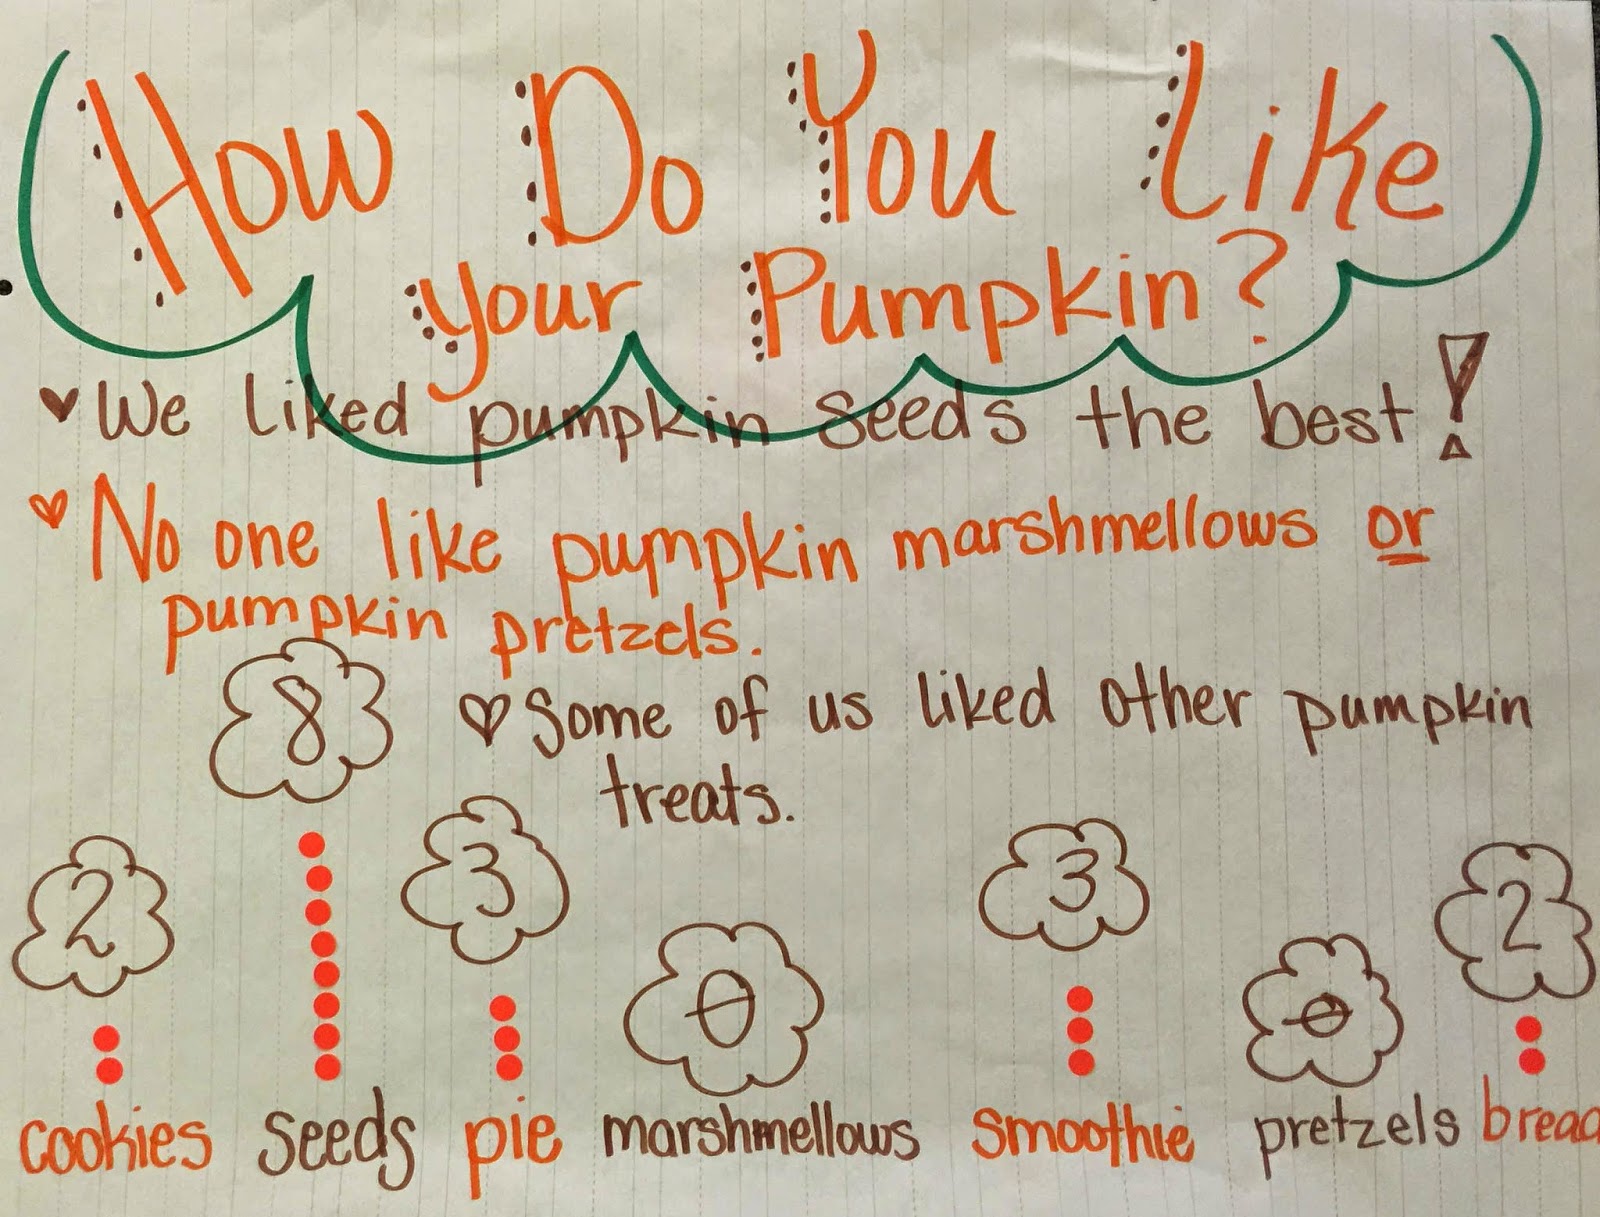 How Do You Like
your Pumpkin?
We liked pumpkin seeds the best!
No one like pumpkin marshmellows or
pumpkin pretzels.
8
Some of us liked other pumpkin
treats.
2 3 0 3 0 2
cookies seeds pie marshmellows smoothie pretzels bread